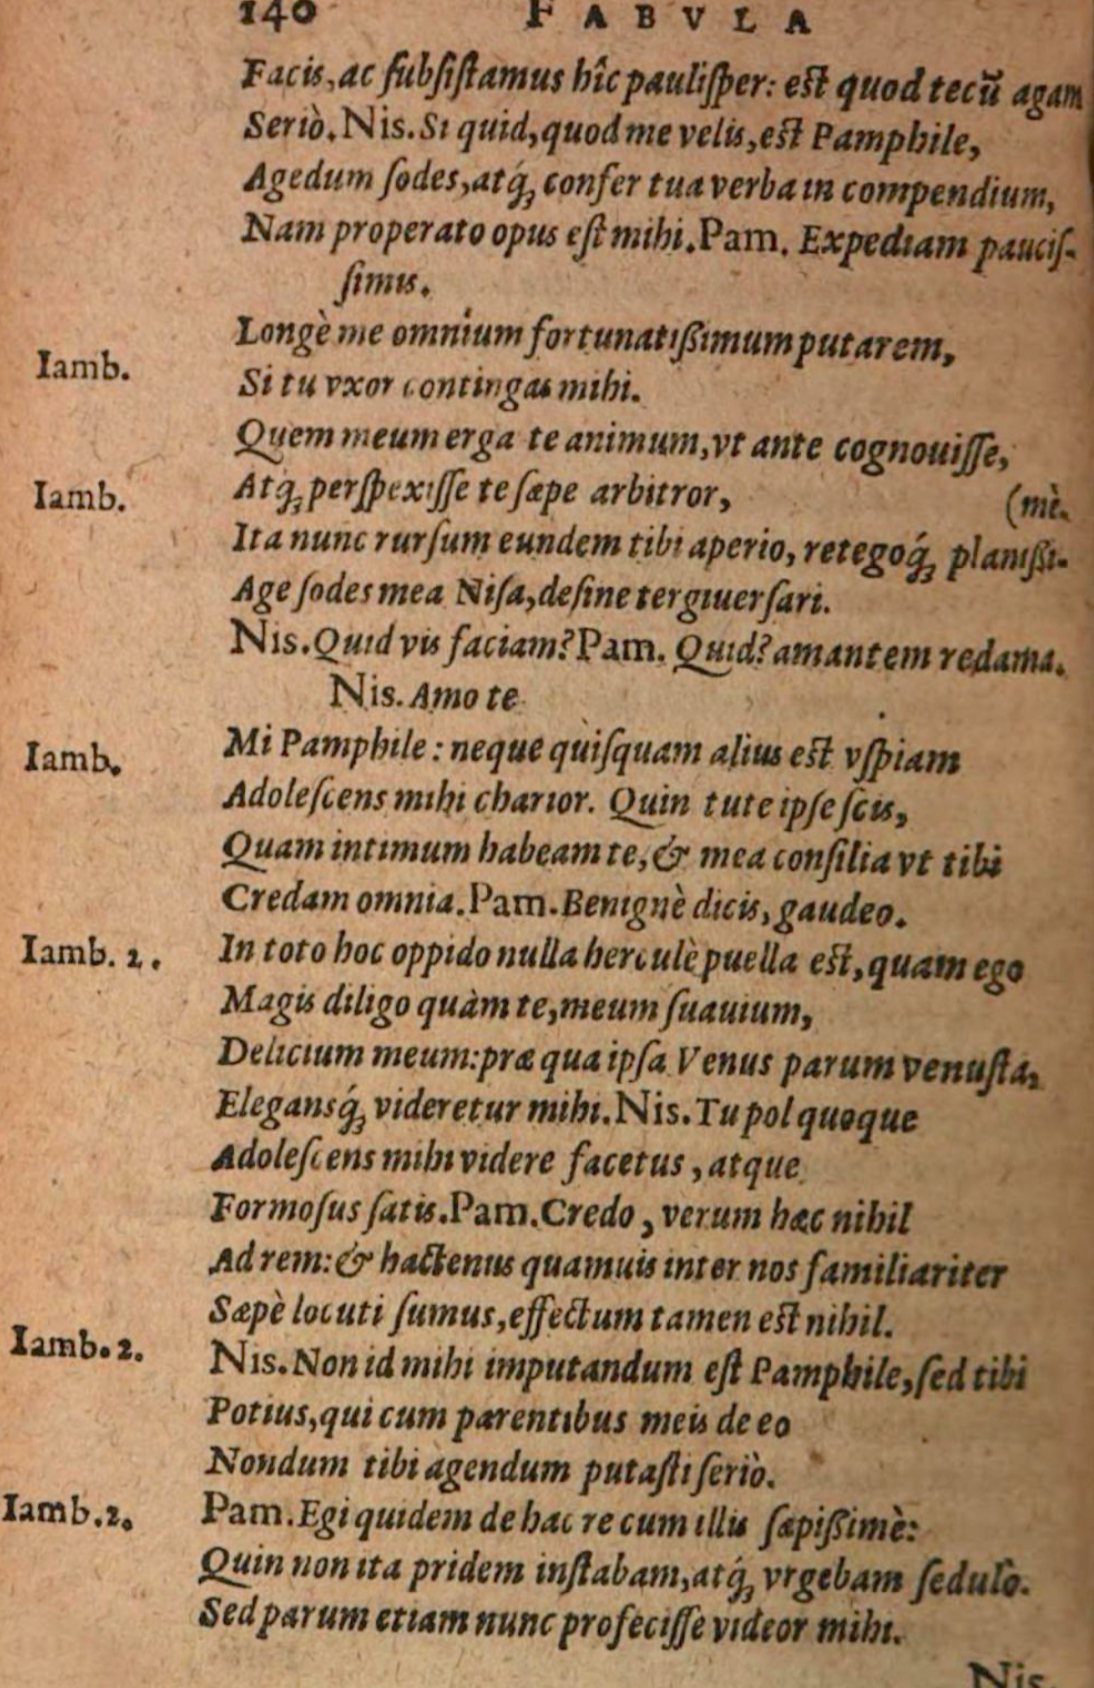 140 FABVLA
Facis, ac ſubſiſtamus hîc pauliſper: eſt quod tecū agam
Seriò. Nis. Si quid, quod me velis, eſt Pamphile,
Agedum ſodes, atq́ꝫ confer tua verba in compendium,
Nam properato opus eſt mihi. Pam. Expediam pauciſ-
ſimis.
Longè me omnium fortunatißimum putarem,
Iamb. Si tu vxor contingas mihi.
Quem meum erga te animum, vt ante cognouiſſe,
Iamb. Atqꝫ perſpexiſſe te ſæpe arbitror, (mè.
Ita nunc rurſum eundem tibi aperio, retegoq́ꝫ planißi-
Age ſodes mea Niſa, deſine tergiuerſari.
Nis. Quid vis faciam? Pam. Quid? amantem redama.
Nis. Amo te
Iamb. Mi Pamphile: neque quiſquam alius eſt vſpiam
Adoleſcens mihi charior. Quin tute ipſe ſcis,
Quam intimum habeam te, & mea conſilia vt tibi
Credam omnia. Pam. Benignè dicis, gaudeo.
Iamb. 2. In toto hoc oppido nulla herculè puella eſt, quam ego
Magis diligo quàm te, meum ſuauium,
Delicium meum: præ qua ipſa Venus parum venuſta,
Elegansq́ꝫ videretur mihi. Nis. Tu pol quoque
Adoleſcens mihi videre facetus, atque
Formoſus ſatis. Pam. Credo, verum hæc nihil
Ad rem: & hactenus quamuis inter nos familiariter
Sæpè locuti ſumus, effectum tamen eſt nihil.
Iamb. 2. Nis. Non id mihi imputandum eſt Pamphile, ſed tibi
Potius, qui cum parentibus meis de eo
Nondum tibi agendum putaſti ſeriò.
Iamb. 2. Pam. Egi quidem de hac re cum illis ſæpißimè:
Quin non ita pridem inſtabam, atq́ꝫ vrgebam ſedulò.
Sed parum etiam nunc profeciſſe videor mihi.
Nis.